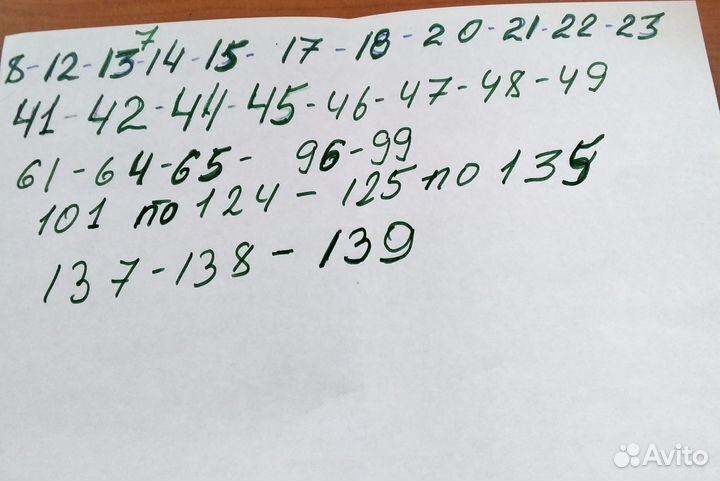 8-12-13-14-15- 17-18-20-21-22-23
7
41-42-44-45-46-47-48-49
61-64-65- 96-99
101 по 124 - 125 по 135
137-138-139
Avito